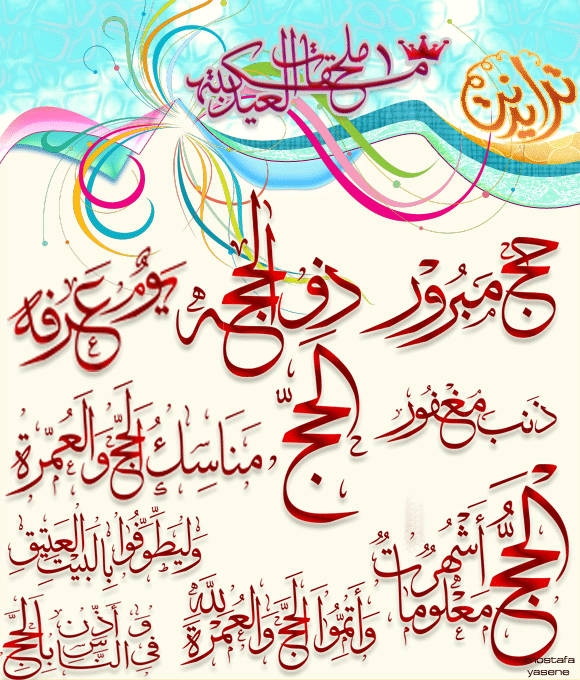 ملحقات العيد
ترايدنت
حج مبرور
ذو الحجه
يوم عرفه
ذنب مغفور
الحجّ
مَنَاسِكُ الحَجِّ وَالعُمْرَة
الحَجُّ أَشْهُرٌ مَعْلُومَاتٌ
وَليَطَّوَّفُوا بِالبَيتِ العَتِيقِ
وَأَتِمُّوا الحَجَّ وَالعُمْرَةَ لله
وَأَذِّنْ في النَّاسِ بِالحَجِّ
mostafa
yasene